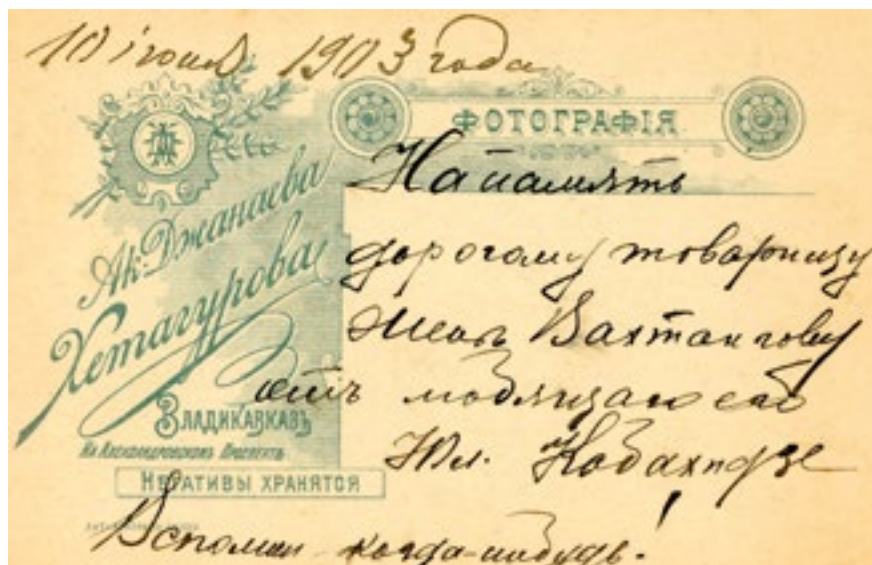 10 іюня 1903 года
ФОТОГРАФІЯ
Ак. Джанаева
Хетагурова
ВЛАДИКАВКАЗЪ
На Александровскомъ Проспектѣ
НЕГАТИВЫ ХРАНЯТСЯ
На память
дорогому товарищу
Жень Вахтангову
отъ любящаго его
Ил. Кобахидзе
Вспомни когда-нибудь!